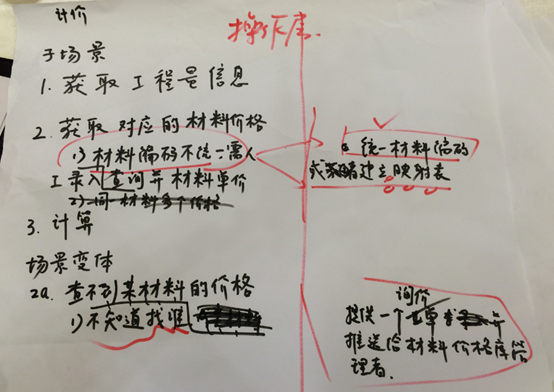 计价
操作层
子场景
1. 获取工程量信息
2. 获取对应的材料价格
1) 材料编码不统一需人
工录入查询并材料单价
2) 同一材料多个价格
3. 计算
场景变体
2a. 查不到某材料的价格
1) 不知道找谁
统一材料编码
或策略建立映射表
询价
提供一个单
推送给材料价格库管
理者.